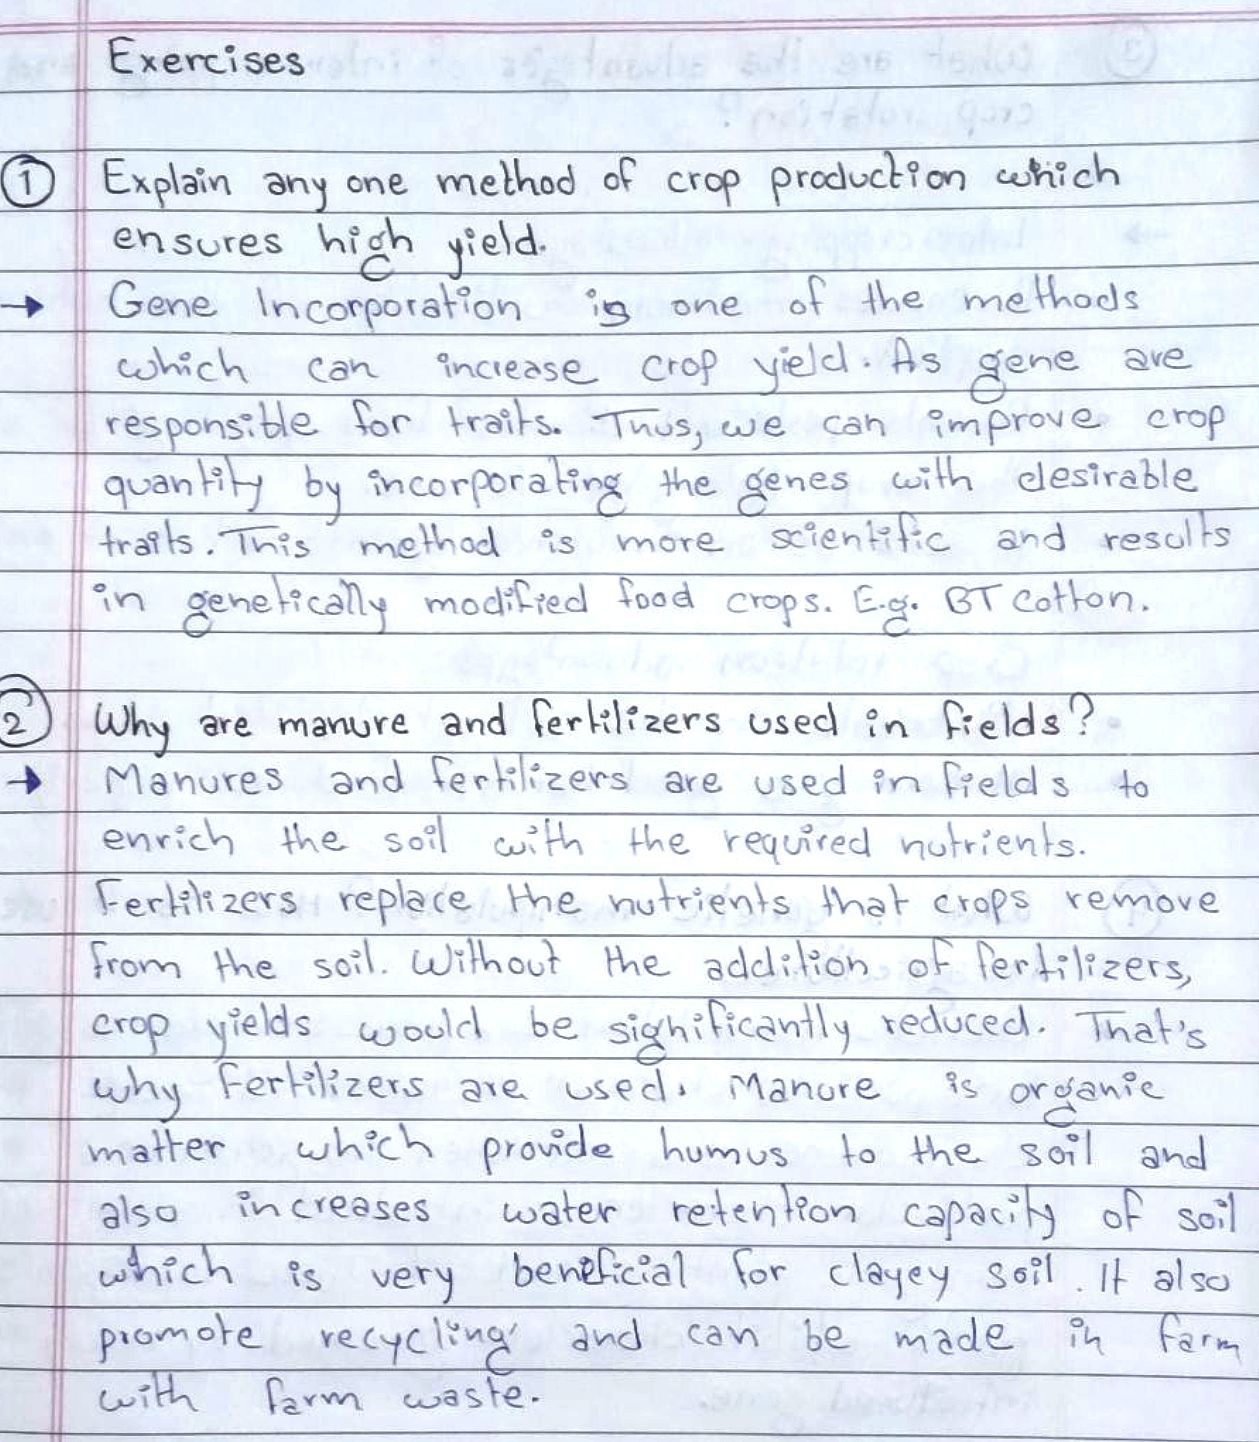 Exercises
1 Explain any one method of crop production which
ensures high yield.
→ Gene Incorporation is one of the methods
which can increase crop yield. As gene are
responsible for traits. Thus, we can improve crop
quantity by incorporating the genes with desirable
traits. This method is more scientific and results
in genetically modified food crops. E.g. BT Cotton.
2 Why are manure and fertilizers used in fields?
→ Manures and fertilizers are used in fields to
enrich the soil with the required nutrients.
Fertilizers replace the nutrients that crops remove
from the soil. Without the addition of fertilizers,
crop yields would be significantly reduced. That's
why fertilizers are used. Manure is organic
matter which provide humus to the soil and
also increases water retention capacity of soil
which is very beneficial for clayey soil. It also
promote recycling and can be made in farm
with farm waste.